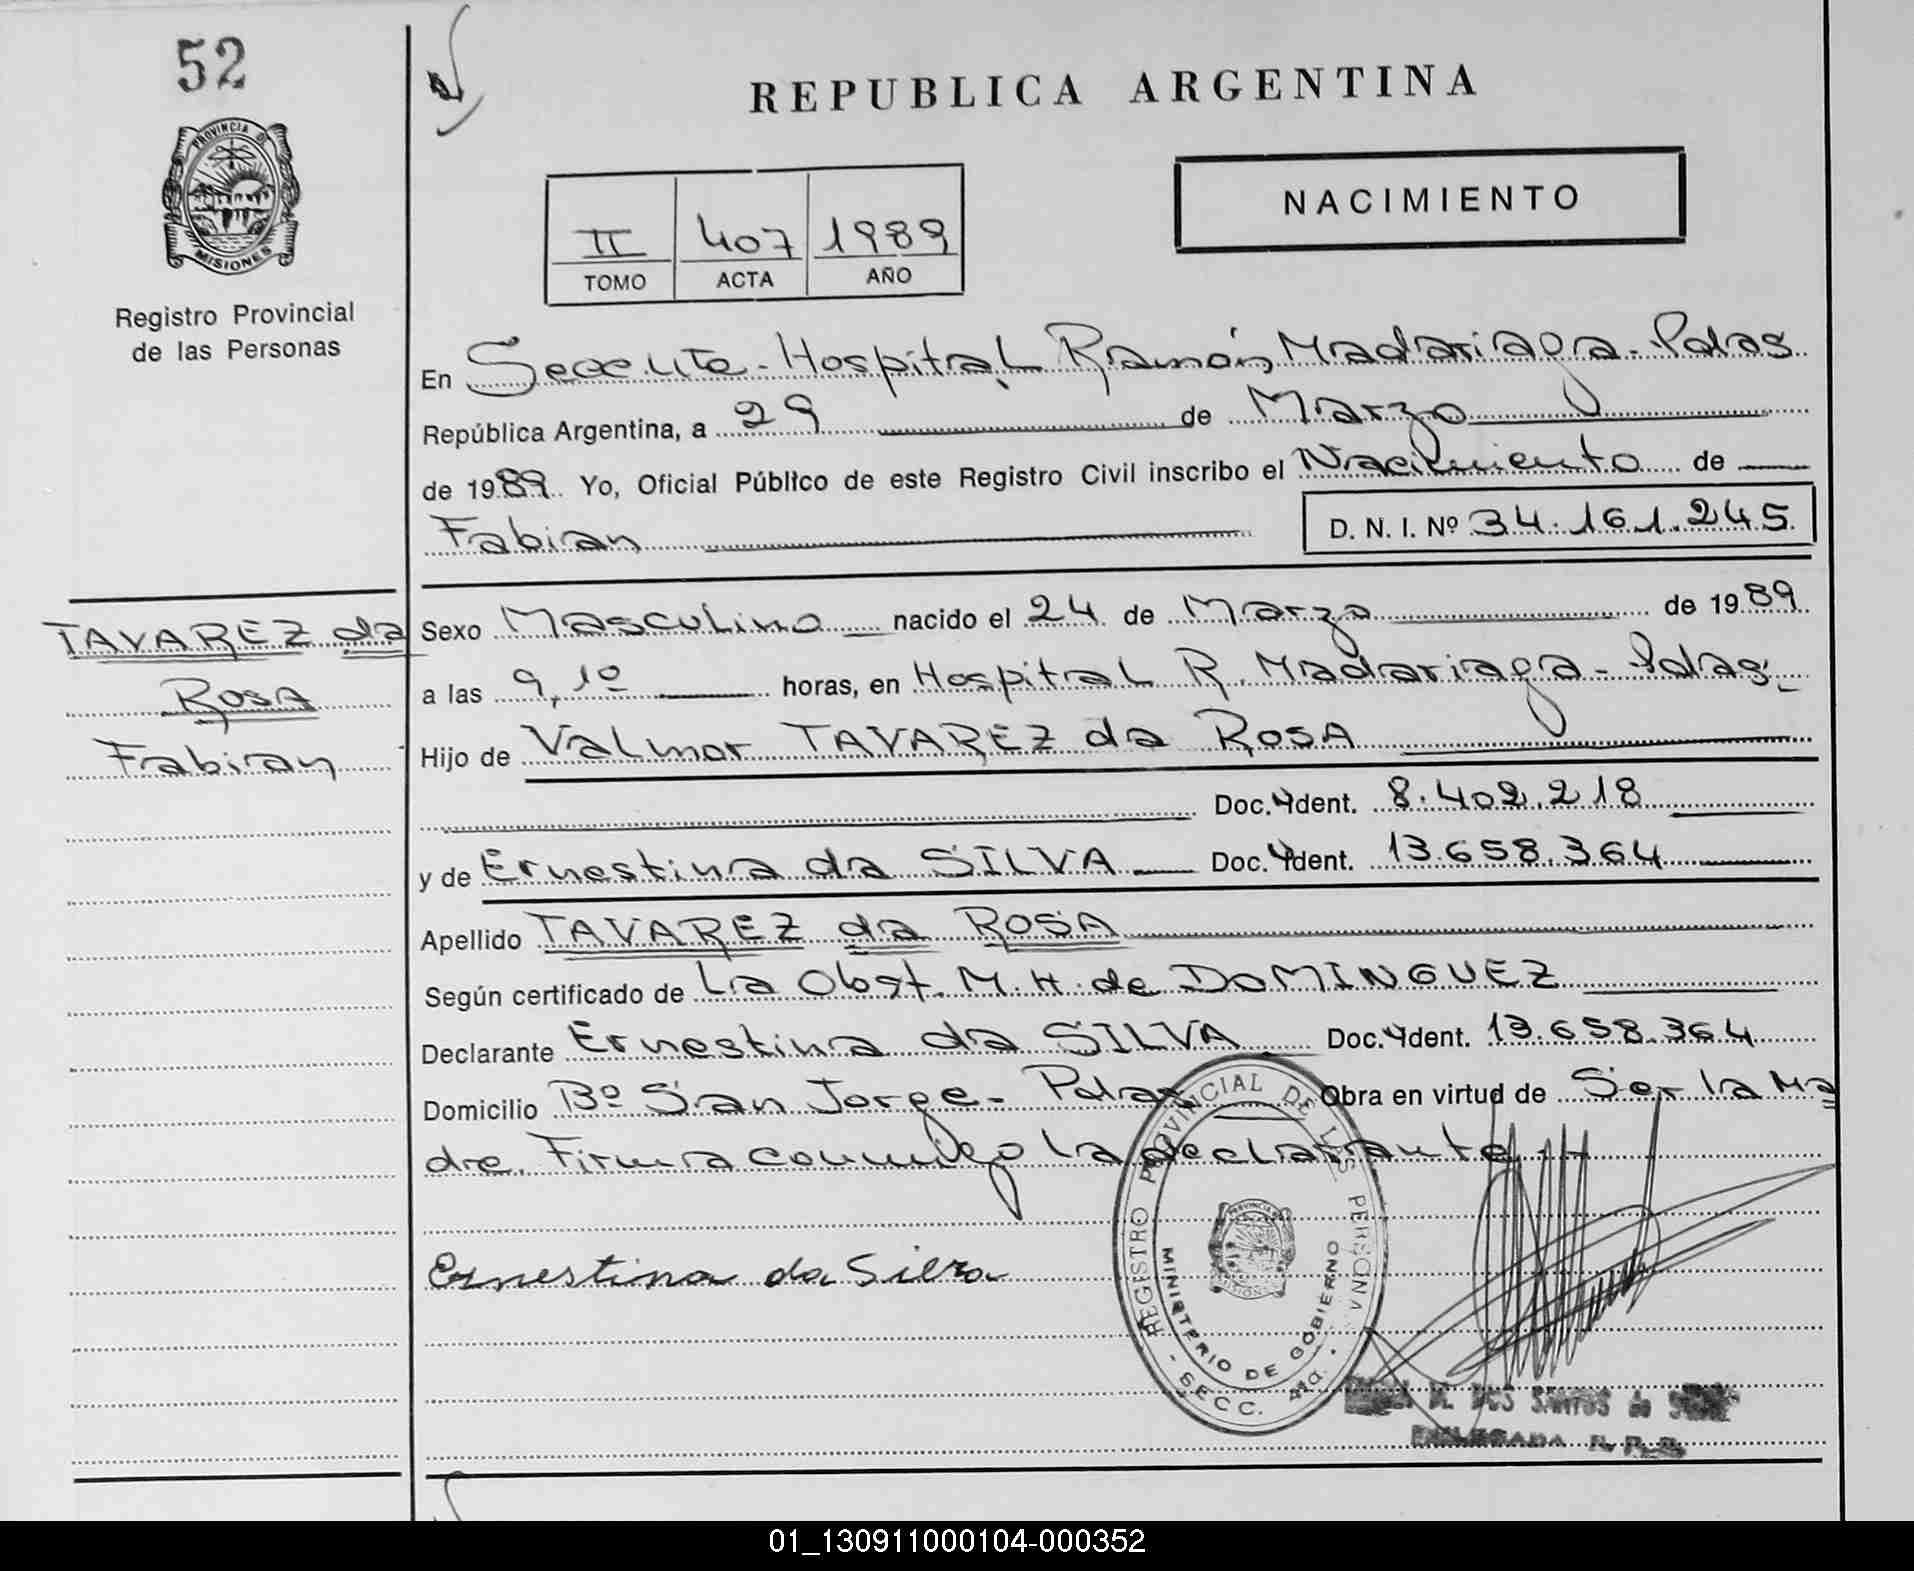 52
REPUBLICA ARGENTINA
PROVINCIA DE
MISIONES
Registro Provincial
de las Personas
NACIMIENTO
II 407 1989
TOMO ACTA AÑO
En Hospital Ramón Madariaga - Pdas
República Argentina, a 29 de Marzo
de 1989. Yo, Oficial Público de este Registro Civil inscribo el Nacimiento de
Fabian D. N. I. Nº 34.161.245
TAVAREZ da
ROSA
Fabian
Sexo Masculino nacido el 24 de Marzo de 1989
a las 9,10 horas, en Hospital R. Madariaga - Pdas
Hijo de Valmor TAVAREZ da ROSA
Doc. Ident. 8.402.218
y de Ernestina da SILVA Doc. Ident. 13.658.364
Apellido TAVAREZ da ROSA
Según certificado de La Obst. M. H. de DOMINGUEZ
Declarante Ernestina da SILVA Doc. Ident. 13.658.364
Domicilio Bº San Jorge - Pdas Obra en virtud de Ser la Ma
dre. Firma conmigo la declarante
Ernestina da Silva
REGISTRO PROVINCIAL DE LAS PERSONAS
MINISTERIO DE GOBIERNO
- SECC. 4ta. -
M. DOS SANTOS de
R. P. P.
01_130911000104-000352